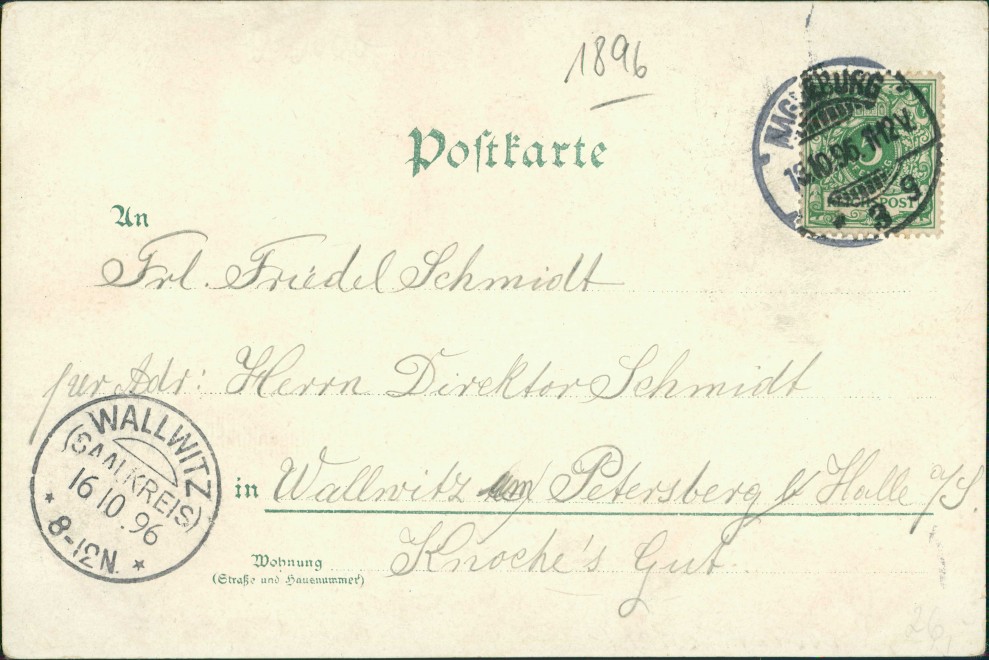 1896
Postkarte
MAGDEBURG
16.10.96. 11-12 V.
* 3 g
POST
An
Frl. Friedel Schmidt
per Adr: Herrn Direktor Schmidt
in Wallwitz am Petersberg b/ Halle a/S.
Knoche's Gut.
Wohnung
(Straße und Hausnummer)
WALLWITZ
(SAALKREIS)
16 10.96
* 8-12N. *
26,